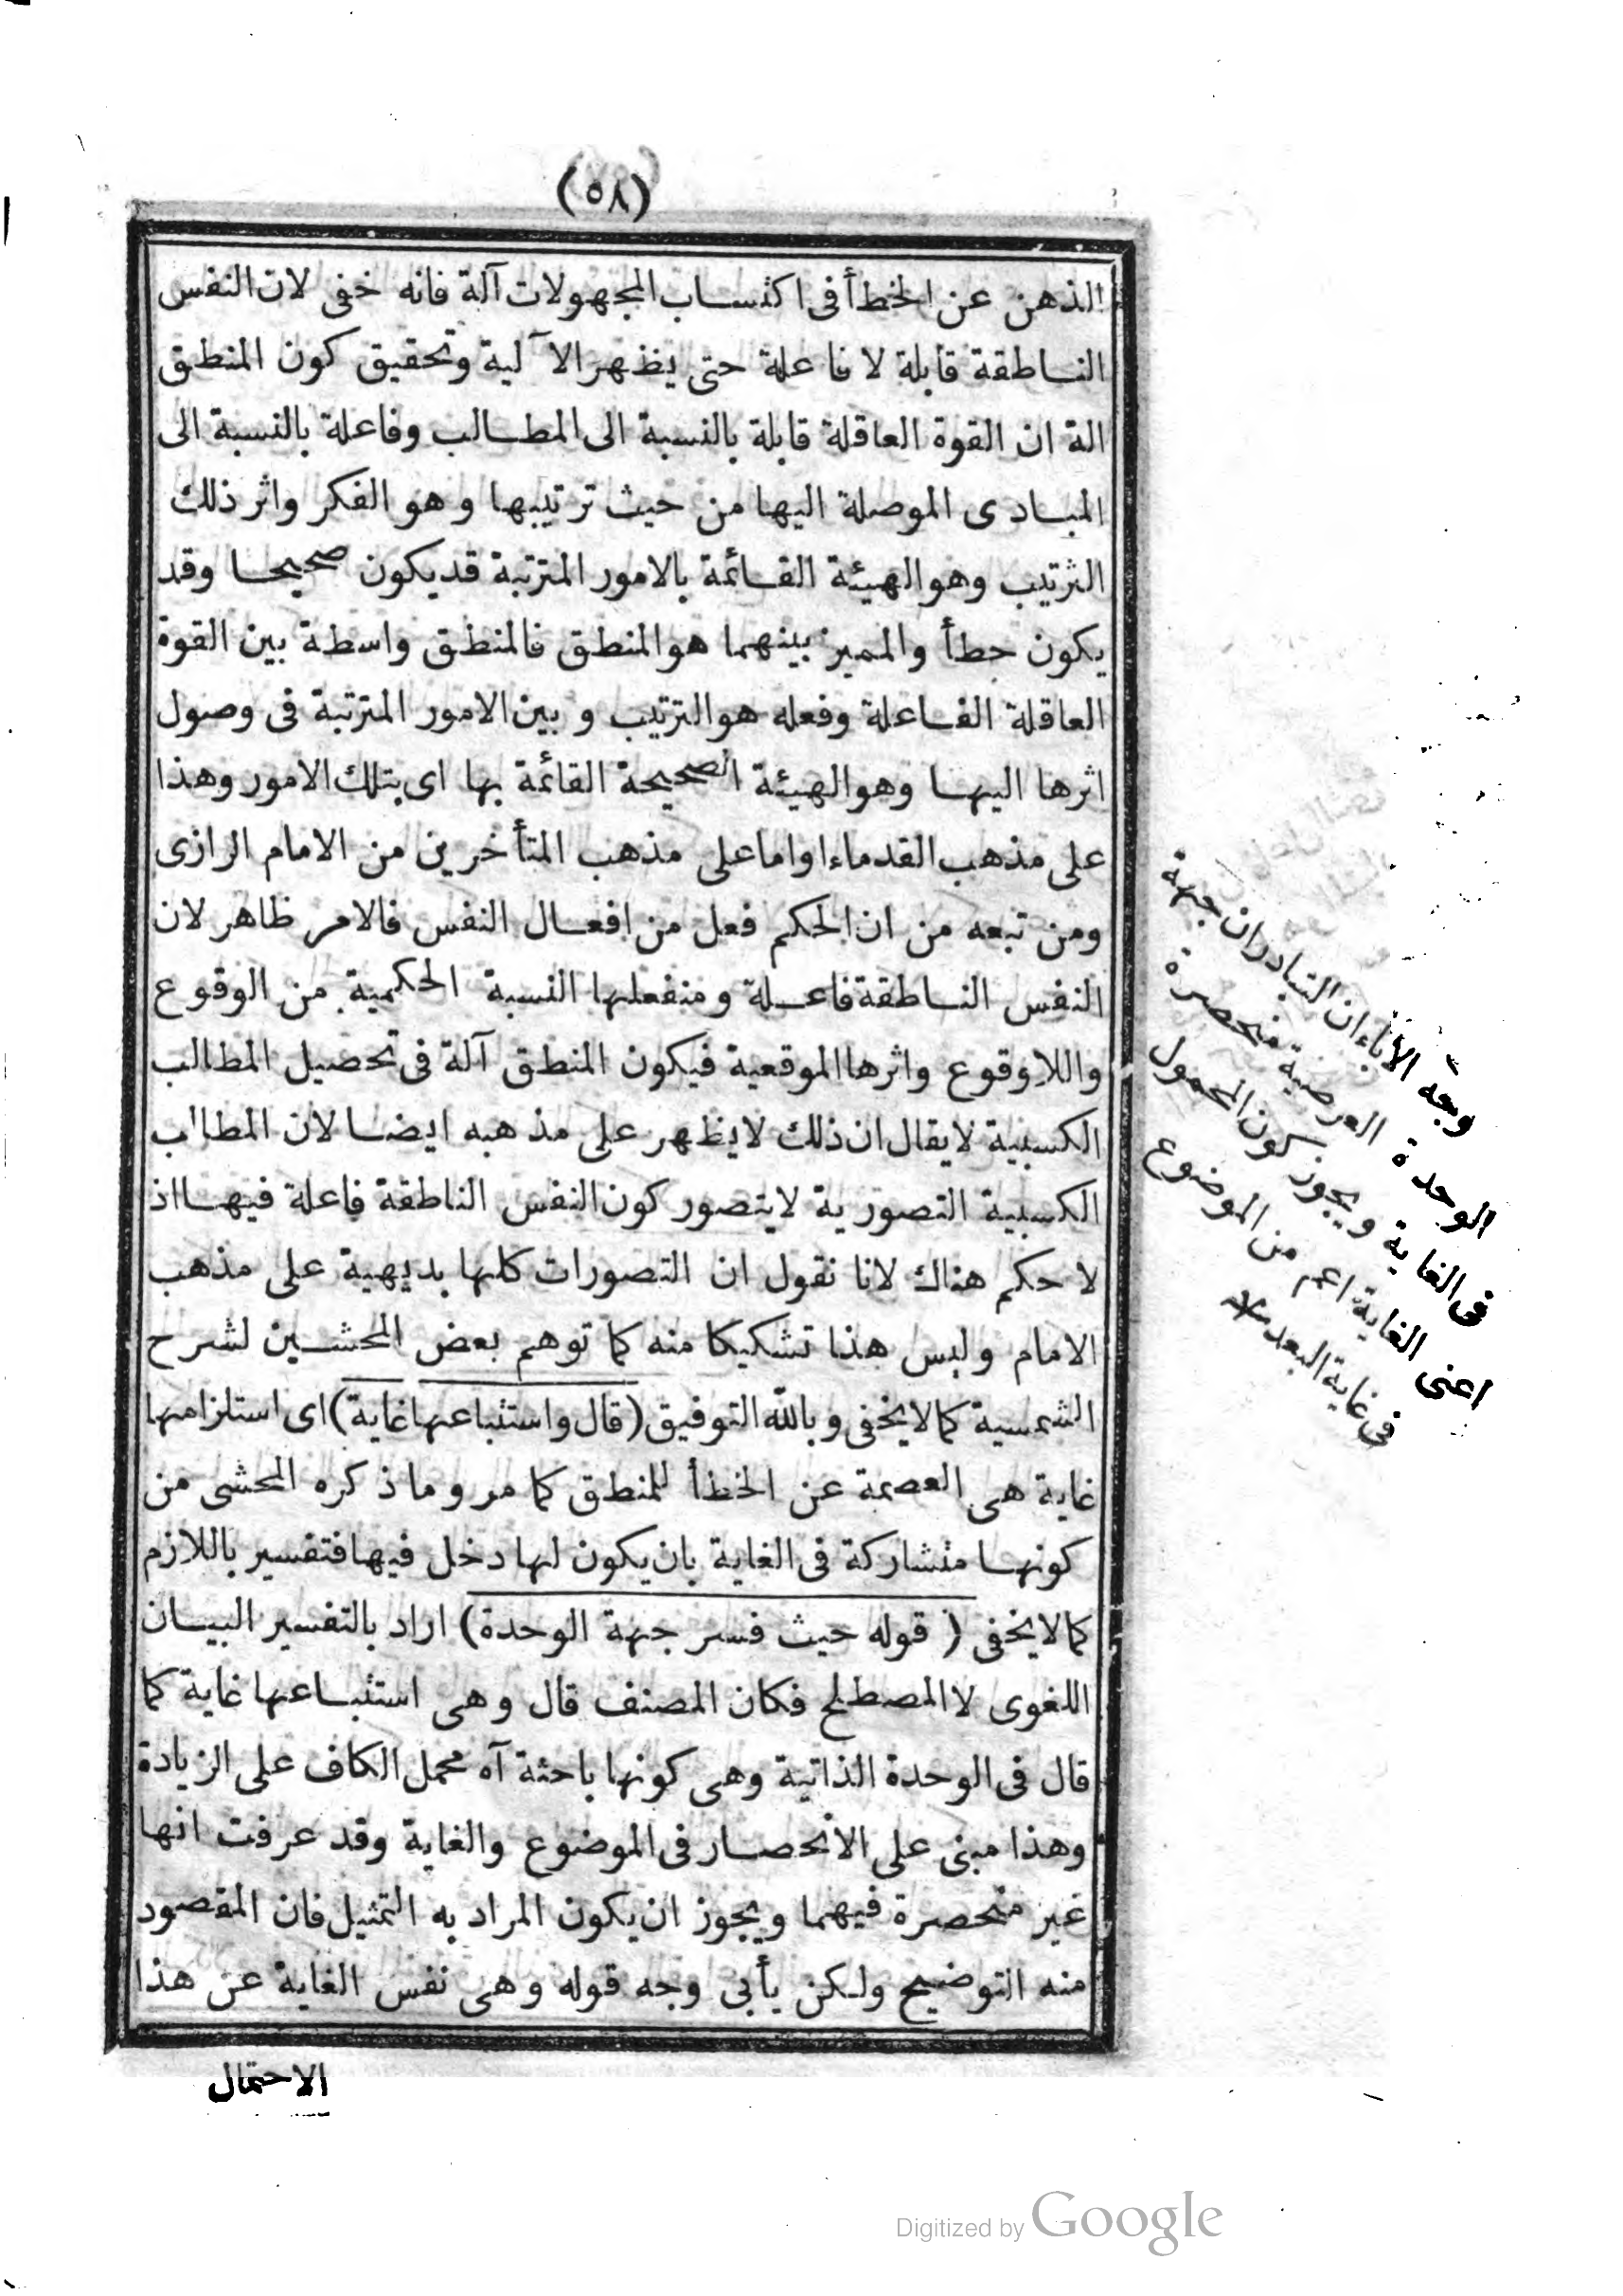 (٥٨)
الذهن عن الخطأ فى اكتساب المجهولات آلة فانه خفى لان النفس
الناطقة قابلة لا فاعلة حتى يظهر الآلية وتحقيق كون المنطق
الة ان القوة العاقلة قابلة بالنسبة الى المطالب وفاعلة بالنسبة الى
المبادى الموصلة اليها من حيث ترتيبها وهو الفكر واثر ذلك
الترتيب وهو الهيئة القائمة بالامور المترتبة قد يكون صحيحا وقد
يكون خطأ والمميز بينهما هو المنطق فالمنطق واسطة بين القوة
العاقلة الفاعلة وفعله هو الترتيب وبين الامور المترتبة فى وصول
اثرها اليها وهو الهيئة الصحيحة القائمة بها اى بتلك الامور وهذا
على مذهب القدماء واما على مذهب المتأخرين من الامام الرازى
ومن تبعه من ان الحكم فعل من افعال النفس فالامر ظاهر لان
النفس الناطقة فاعلة ومنفعلها النسبة الحكمية من الوقوع
واللاوقوع واثرها الموقعية فيكون المنطق آلة فى تحصيل المطالب
الكسبية لا يقال ان ذلك لا يظهر على مذهبه ايضا لان المطالب
الكسبية التصورية لا يتصور كون النفس الناطقة فاعلة فيها اذ
لا حكم هناك لانا نقول ان التصورات كلها بديهية على مذهب
الامام وليس هذا تشكيكا منه كما توهم بعض المحشين لشرح
الشمسية كما لا يخفى وبالله التوفيق (قال واستتباعها غاية) اى استلزامها
غاية هى العصمة عن الخطأ للمنطق كما مر وما ذكره المحشى من
كونها متشاركة فى الغاية بان يكون لها دخل فيها فتفسير باللازم
كما لا يخفى (قوله حيث فسر جهة الوحدة) اراد بالتفسير البيان
اللغوى لا المصطلح فكان المصنف قال وهى استتباعها غاية كما
قال فى الوحدة الذاتية وهى كونها باحثة آه محمل الكاف على الزيادة
وهذا مبنى على الانحصار فى الموضوع والغاية وقد عرفت انها
غير منحصرة فيهما ويجوز ان يكون المراد به التمثيل فان المقصود
منه التوضيح ولكن يأبى وجه قوله وهى نفس الغاية عن هذا
الاحتمال
وجه الأباء ان التبادر ان جهة
الوحدة العرضية منحصرة
فى الغاية ويجوز كون المحمول
اعنى الغاية اعم من الموضوع
فى غاية البعد
Digitized by Google